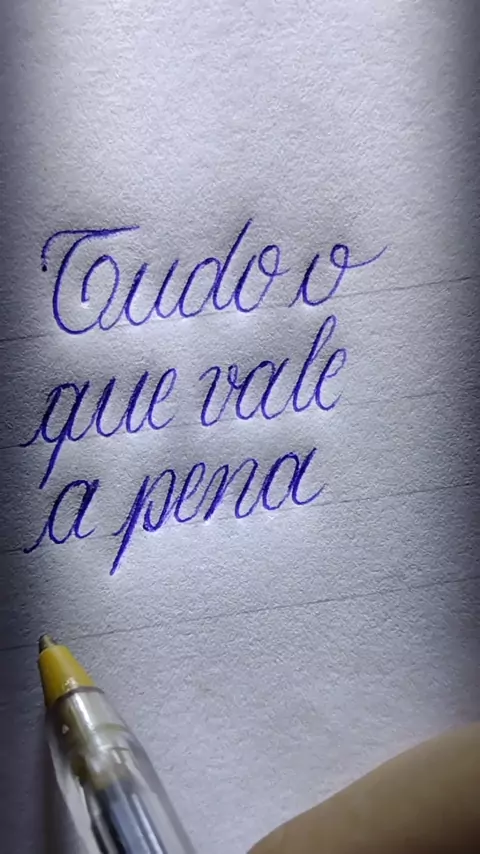 Tudo o
que vale
a pena